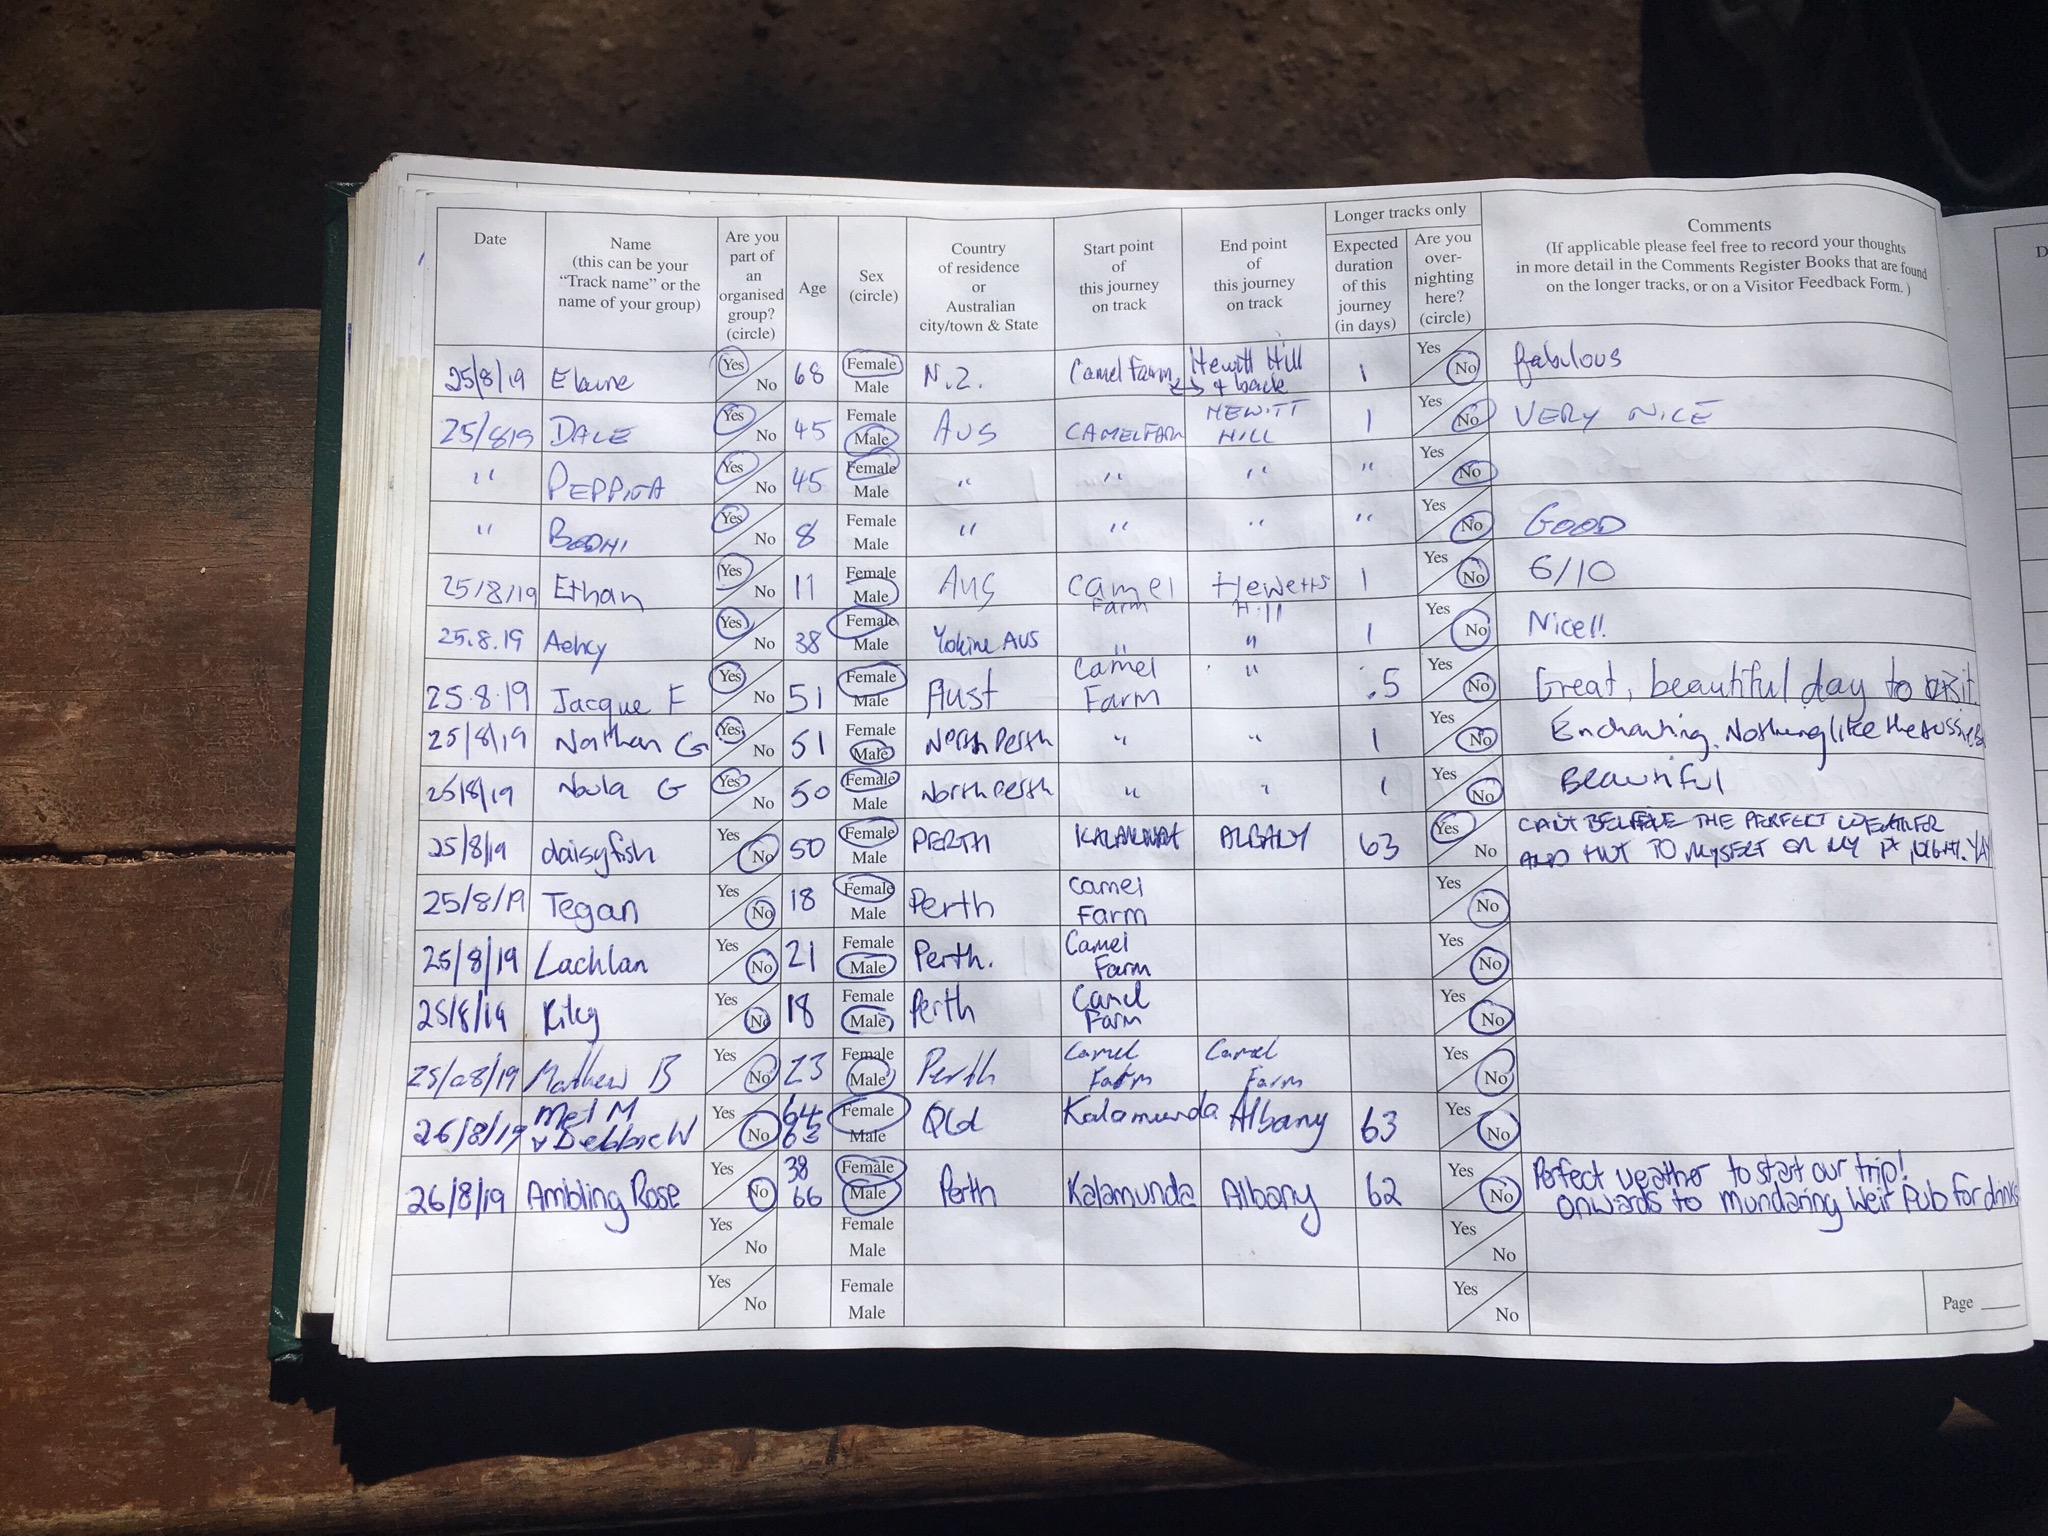 Longer tracks only
Date
Name
(this can be your
"Track name" or the
name of your group)
Are you
part of
an
organised
group?
(circle)
Age
Sex
(circle)
Country
of residence
or
Australian
city/town & State
Start point
of
this journey
on track
End point
of
this journey
on track
Expected
duration
of this
journey
(in days)
Are you
over-
nighting
here?
(circle)
Comments
(If applicable please feel free to record your thoughts
in more detail in the Comments Register Books that are found
on the longer tracks, or on a Visitor Feedback Form.)
25/8/19 Elaine Yes No 68 Female Male N.Z. Camel Farm Hewitt Hill 1 Yes No fabulous
& back
25/8/19 DALE Yes No 45 Female Male AUS CAMEL FARM HEWITT HILL 1 Yes No VERY NICE
" Yes No 45 Female Male " " " " Yes No
" BODHI Yes No 8 Female Male " " " " Yes No GOOD
25/8/19 Ethan Yes No 11 Female Male AUS Camel Farm Hewetts Hill 1 Yes No 6/10
25.8.19 Yes No 38 Female Male Yokine AUS " " 1 Yes No Nice!!
25.8.19 Jacque F Yes No 51 Female Male Aust Camel Farm " .5 Yes No Great, beautiful day to visit.
25/8/19 Nathan G Yes No 51 Female Male North Perth " " 1 Yes No Enchanting. Nothing like the Aussie
25/8/19 Noula G Yes No 50 Female Male North Perth " " 1 Yes No Beautiful
25/8/19 daisyfish Yes No 50 Female Male PERTH ALBANY 63 Yes No CAN'T BELIEVE THE PERFECT WEATHER
AND HUT TO MYSELF ON MY 1st NIGHT. YAY
25/8/19 Tegan Yes No 18 Female Male Perth Camel Farm Yes No
25/8/19 Lachlan Yes No 21 Female Male Perth. Camel Farm Yes No
25/8/19 Yes No 18 Female Male Perth Camel Farm Yes No
25/08/19 Mathew B Yes No 23 Female Male Perth Camel Farm Camel Farm Yes No
26/8/19 Mel M Yes No 64 Female Male Qld Kalamunda Albany 63 Yes No
Debbie W
26/8/19 Ambling Rose Yes No 38 66 Female Male Perth Kalamunda Albany 62 Yes No Perfect weather to start our trip!
onwards to Mundaring Weir Pub for drinks
Yes No Female Male Yes No
Yes No Female Male Yes No
Page